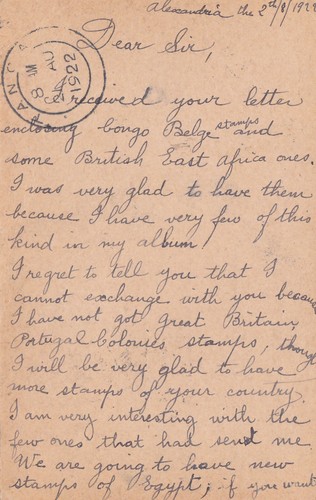 Alexandria the 2th/8/1922
Dear Sir,
I received your letter
enclosing Congo Belge stamps and
some British East Africa ones.
I was very glad to have them
because I have very few of this
kind in my album!
I regret to tell you that I
cannot exchange with you because
I have not got Great Britain,
Portugal Colonies stamps, though
I will be very glad to have
more stamps of your country.
I am very interesting with the
few ones that had send me
We are going to have new
stamps of Egypt; if you want
8 AM
AU
1922